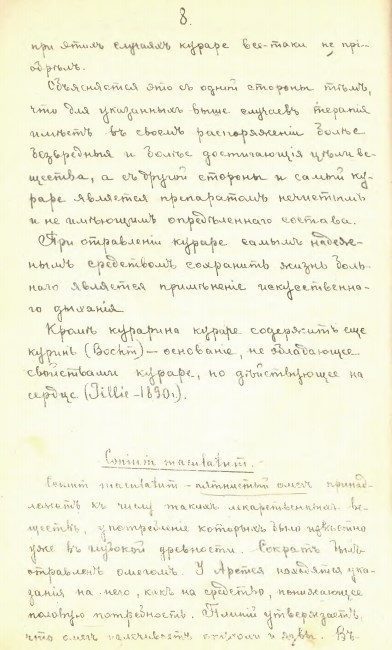 8.
при этихъ случаяхъ кураре все-таки не прі-
обрѣлъ.
Объясняется это съ одной стороны тѣмъ,
что для указанныхъ выше случаевъ терапія
имѣетъ въ своемъ распоряженіи болѣе
безвредныя и болѣе достигающія цѣли ве-
щества, а съ другой стороны и самый ку-
раре является препаратомъ нечистымъ
и не имѣющимъ опредѣленнаго состава.
При отравленіи кураре самымъ надеж-
нымъ средствомъ сохранить жизнь боль-
наго является примѣненіе искусственна-
го дыханія
Кромѣ курарина кураре содержитъ еще
куринъ (Boehm) – основаніе, не обладающее
свойствами кураре, но дѣйствующее на
сердце (Tillie – 1890 г.).
Conium maculatum.
Conium maculatum – пятнистый омегъ принад-
лежитъ къ числу такихъ лекарственныхъ ве-
ществъ, употребленіе которыхъ было извѣстно
уже въ глубокой древности. Сократъ былъ
отравленъ омегомъ. У Аретея находятся ука-
занія на него, какъ на средство, понижающее
половую потребность. Плиній утверждаетъ,
что омегъ излечиваетъ опухоли и язвы. Въ